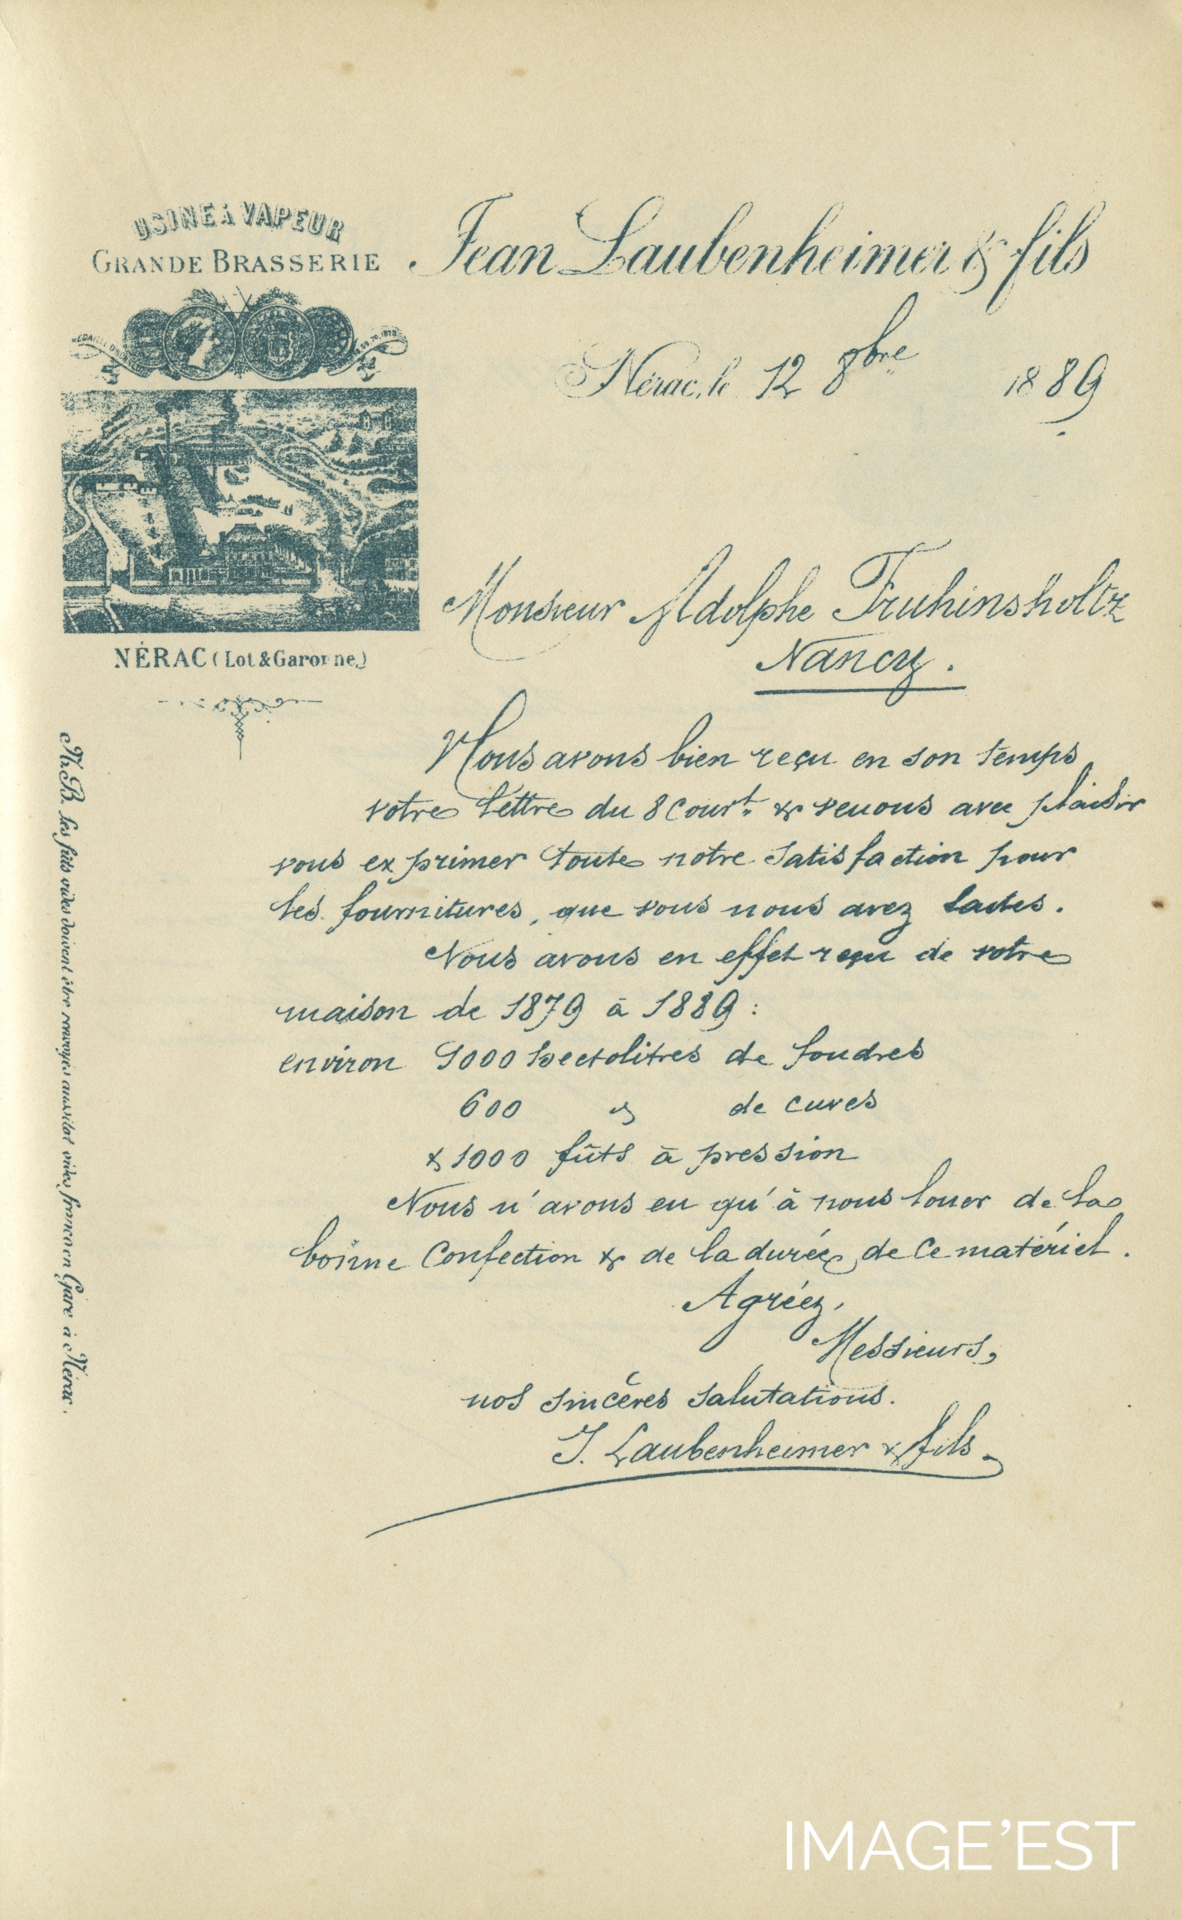 USINE à VAPEUR
GRANDE BRASSERIE
Jean Laubenheimer & fils
Nérac, le 12 8bre 1889
NÉRAC (Lot & Garonne)
N.B. les fûts vides doivent être renvoyés aussitot vides franco en Gare à Nérac.
Monsieur Adolphe Fruhinsholtz
Nancy.
Nous avons bien reçu en son temps
votre lettre du 8 court. & venons avec plaisir
vous exprimer toute notre satisfaction pour
les fournitures, que vous nous avez faites.
Nous avons en effet reçu de votre
maison de 1879 à 1889 :
environ 9000 hectolitres de foudres
600 " de cuves
& 1000 fûts à pression
Nous n'avons eu qu'à nous louer de la
bonne confection & de la durée de ce matériel.
Agréez,
Messieurs,
nos sincères salutations.
J. Laubenheimer & fils
IMAGE'EST